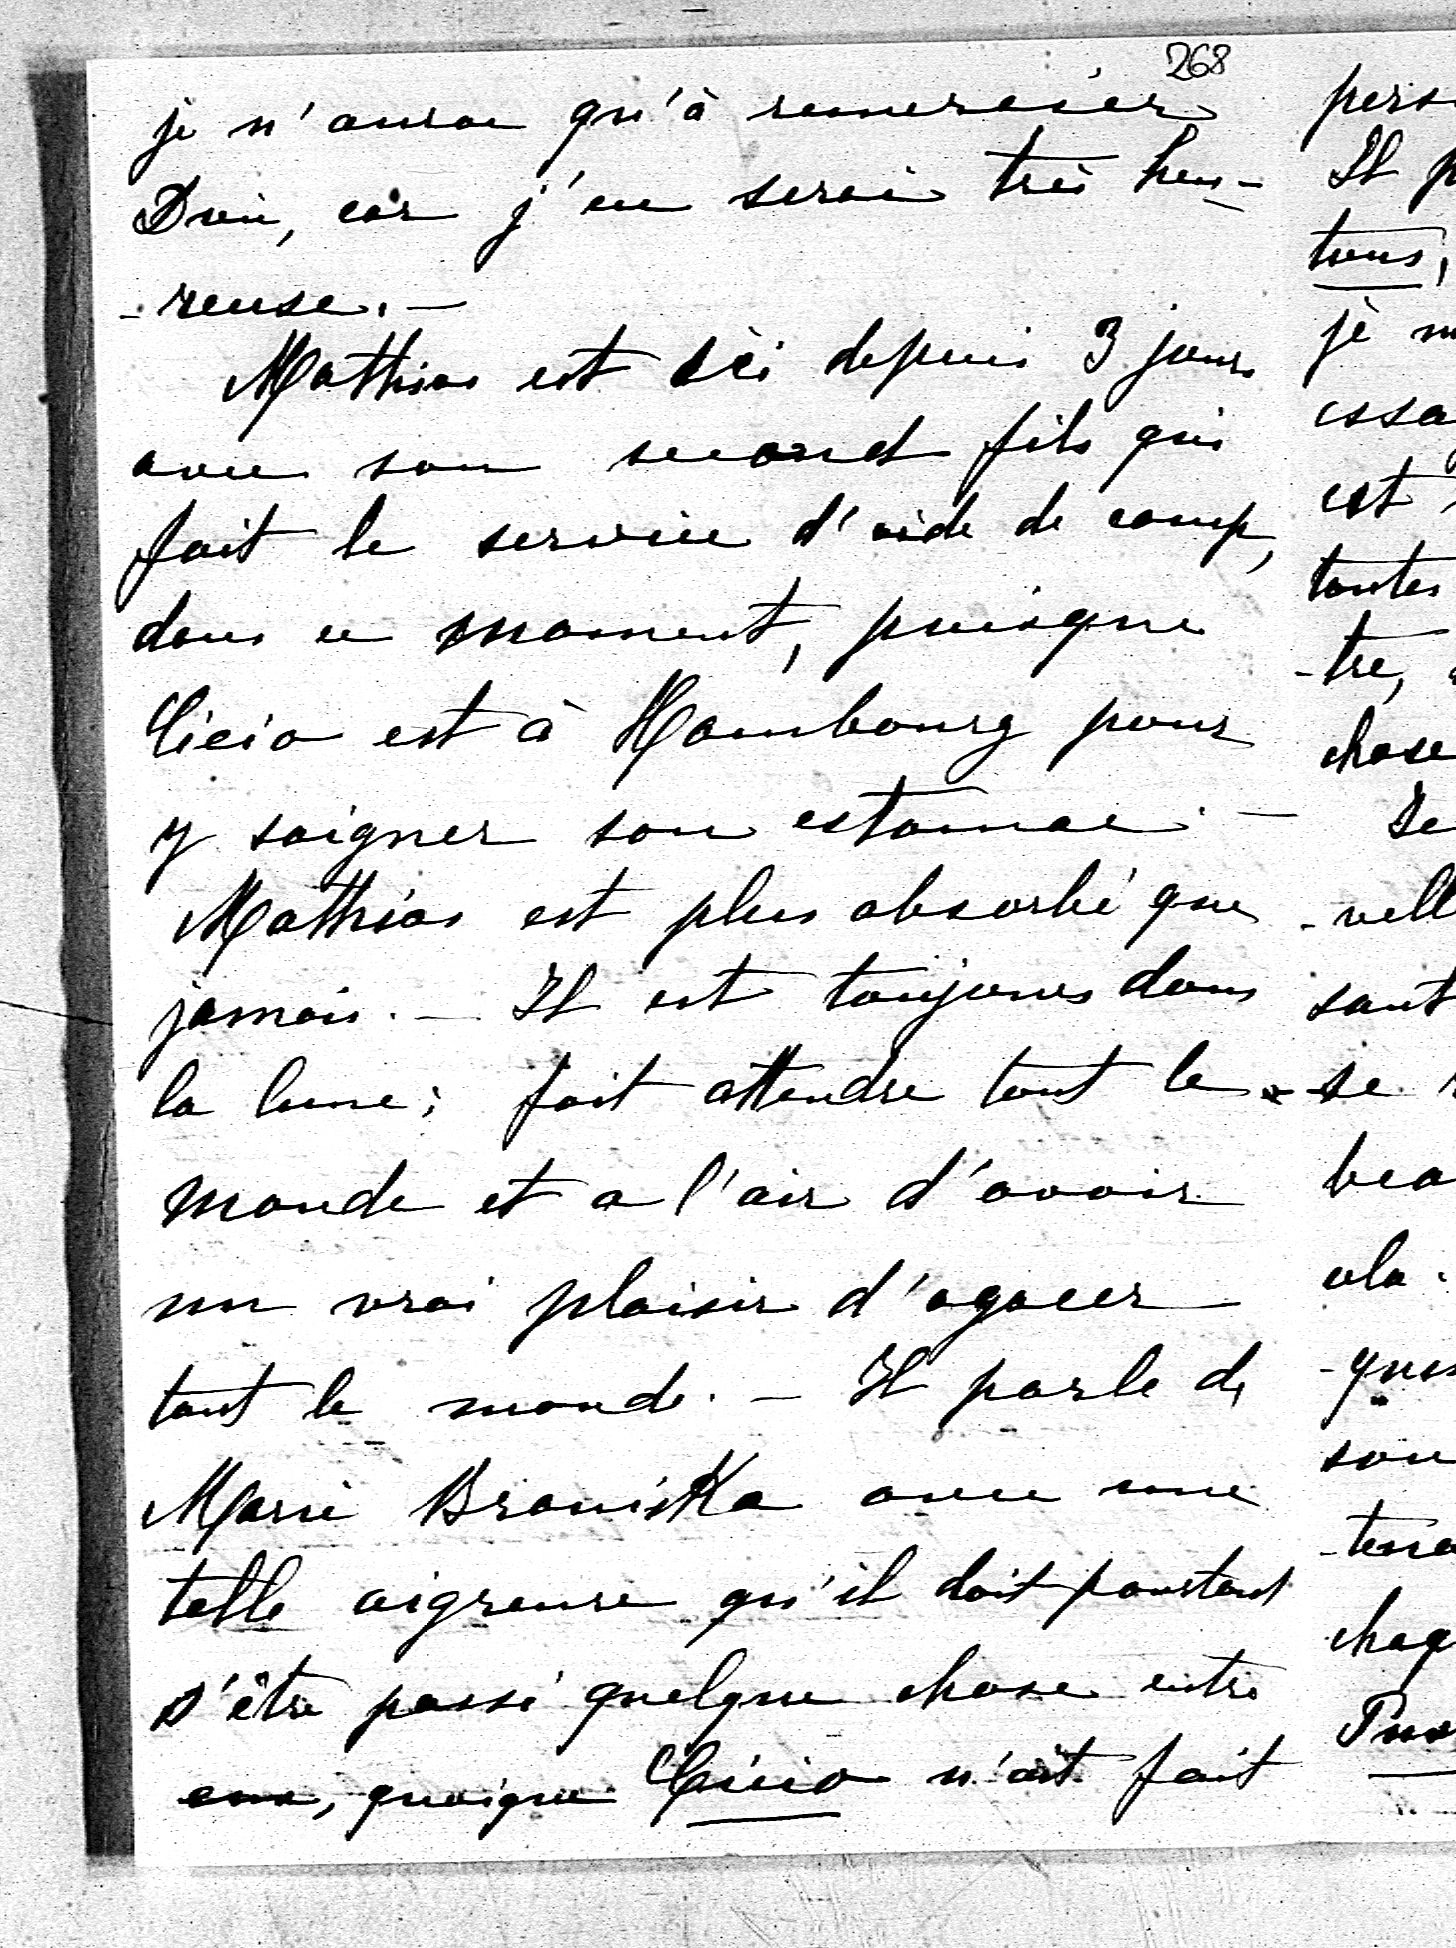 268
je n'aurai qu'à remercier
Dieu, car j'en serai très heu-
-reuse. —
Mathias est ici depuis 3 jours
avec son second fils qui
fait le service d'aide de camp,
dans ce moment, puisque
Cicio est à Hambourg pour
y soigner son estomac. —
Mathias est plus absorbé que
jamais. — Il est toujours dans
la lune; fait attendre tout le
monde et a l'air d'avoir
un vrai plaisir d'agacer
tout le monde. — Il parle de
Marie Braniska avec une
telle aigreure qu'il doit pourtant
s'être passé quelque chose entre
eux, quoique Cicio n'ait fait
pers
Il p
tous,
je m
essa
est
toutes
-tre,
chose
Je
-vell
sant
se
bea
cla
-ques
son
-tena
chaq